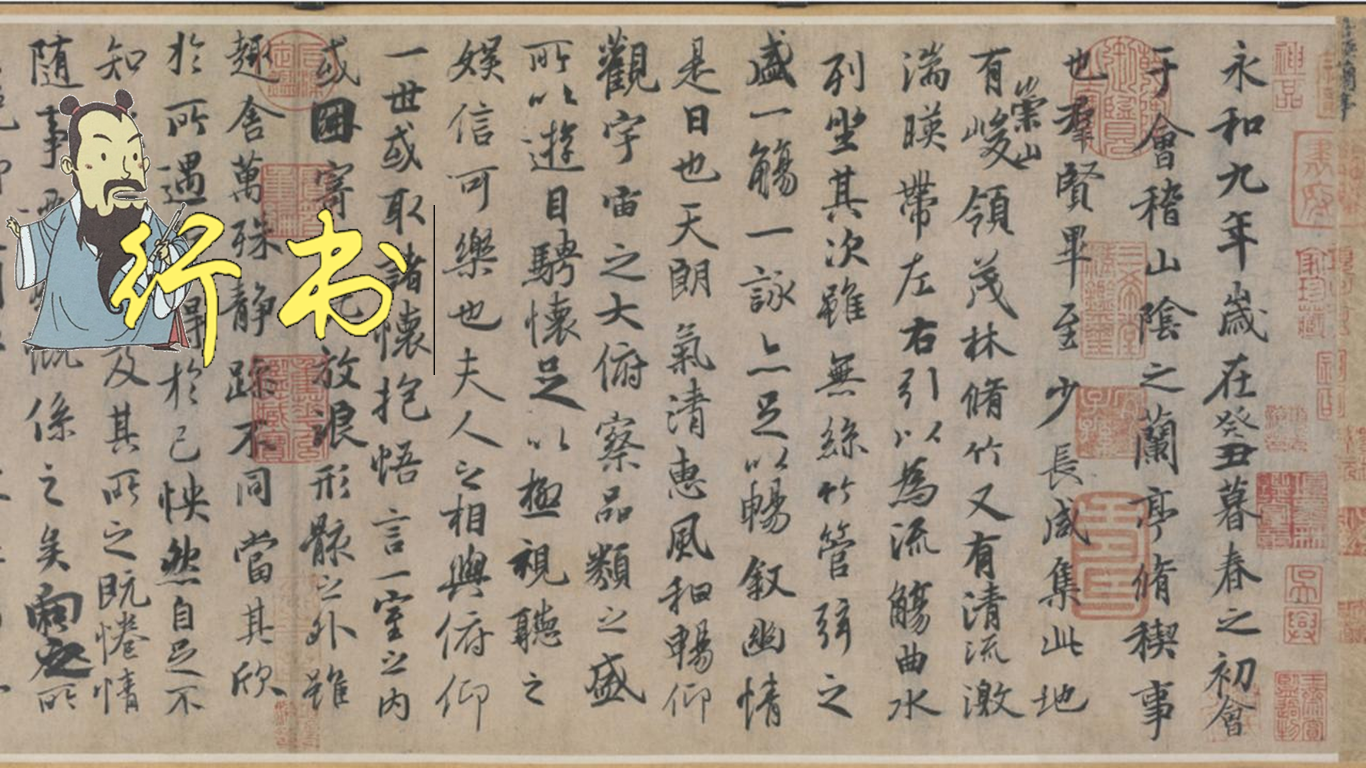 永和九年歲在癸丑暮春之初會
于會稽山陰之蘭亭脩稧事
也羣賢畢至少長咸集此地
有崇山峻領茂林脩竹又有清流激
湍暎帶左右引以為流觴曲水
列坐其次雖無絲竹管弦之
盛一觴一詠亦足以暢叙幽情
是日也天朗氣清惠風和暢仰
觀宇宙之大俯察品類之盛
所以遊目騁懷足以極視聽之
娛信可樂也夫人之相與俯仰
一世或取諸懷抱悟言一室之内
或因寄放浪形骸之外雖
趣舍萬殊静躁不同當其欣
於所遇得於己怏然自足不
知及其所之既惓情
随事慨係之矣向之所
行书